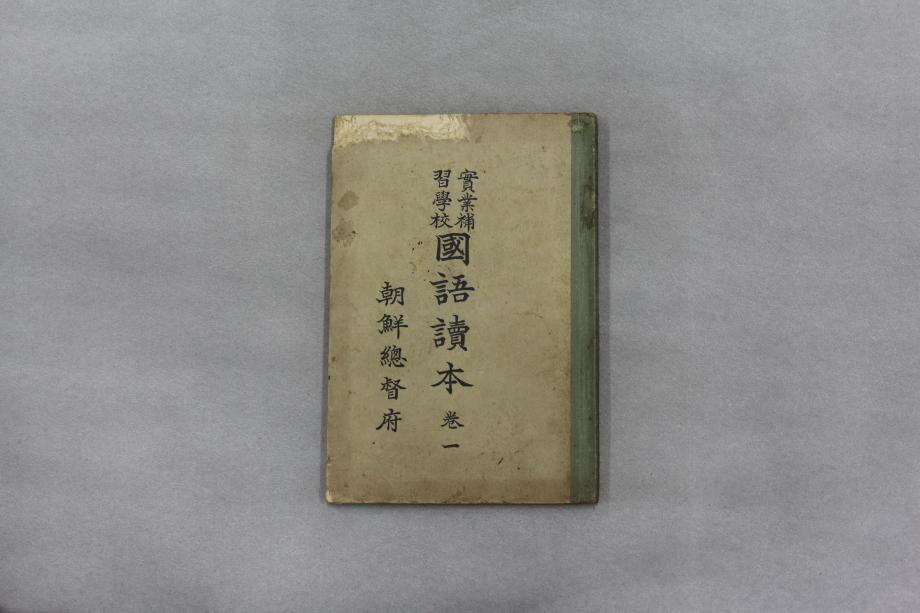 實業補
習學校
國語讀本 卷一
朝鮮總督府